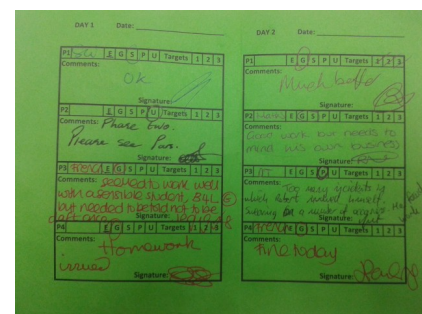 DAY 1 Date:
P1 E G S P U Targets 1 2 3
Comments:
OK
Signature:
P2 E G S P U Targets 1 2 3
Comments: Phase two.
Please see
Signature:
P3 French E G S P U Targets 1 2 3
Comments: seemed to work well
with a sensible student, B4L
but needed to be told not to be
daft once
P4 E G S P U Targets 1 2 3
Comments:
Homework
issues
Signature:
DAY 2 Date:
P1 E G S P U Targets 1 2 3
Comments:
Much better
Signature:
P2 E G S P U Targets 1 2 3
Comments:
Good work but needs to
mind his own business
Signature:
P3 IT E G S P U Targets 1 2 3
Comments: Too many incidents in
which involved himself.
P4 French E G S P U Targets 1 2 3
Comments:
Fine today
Signature: